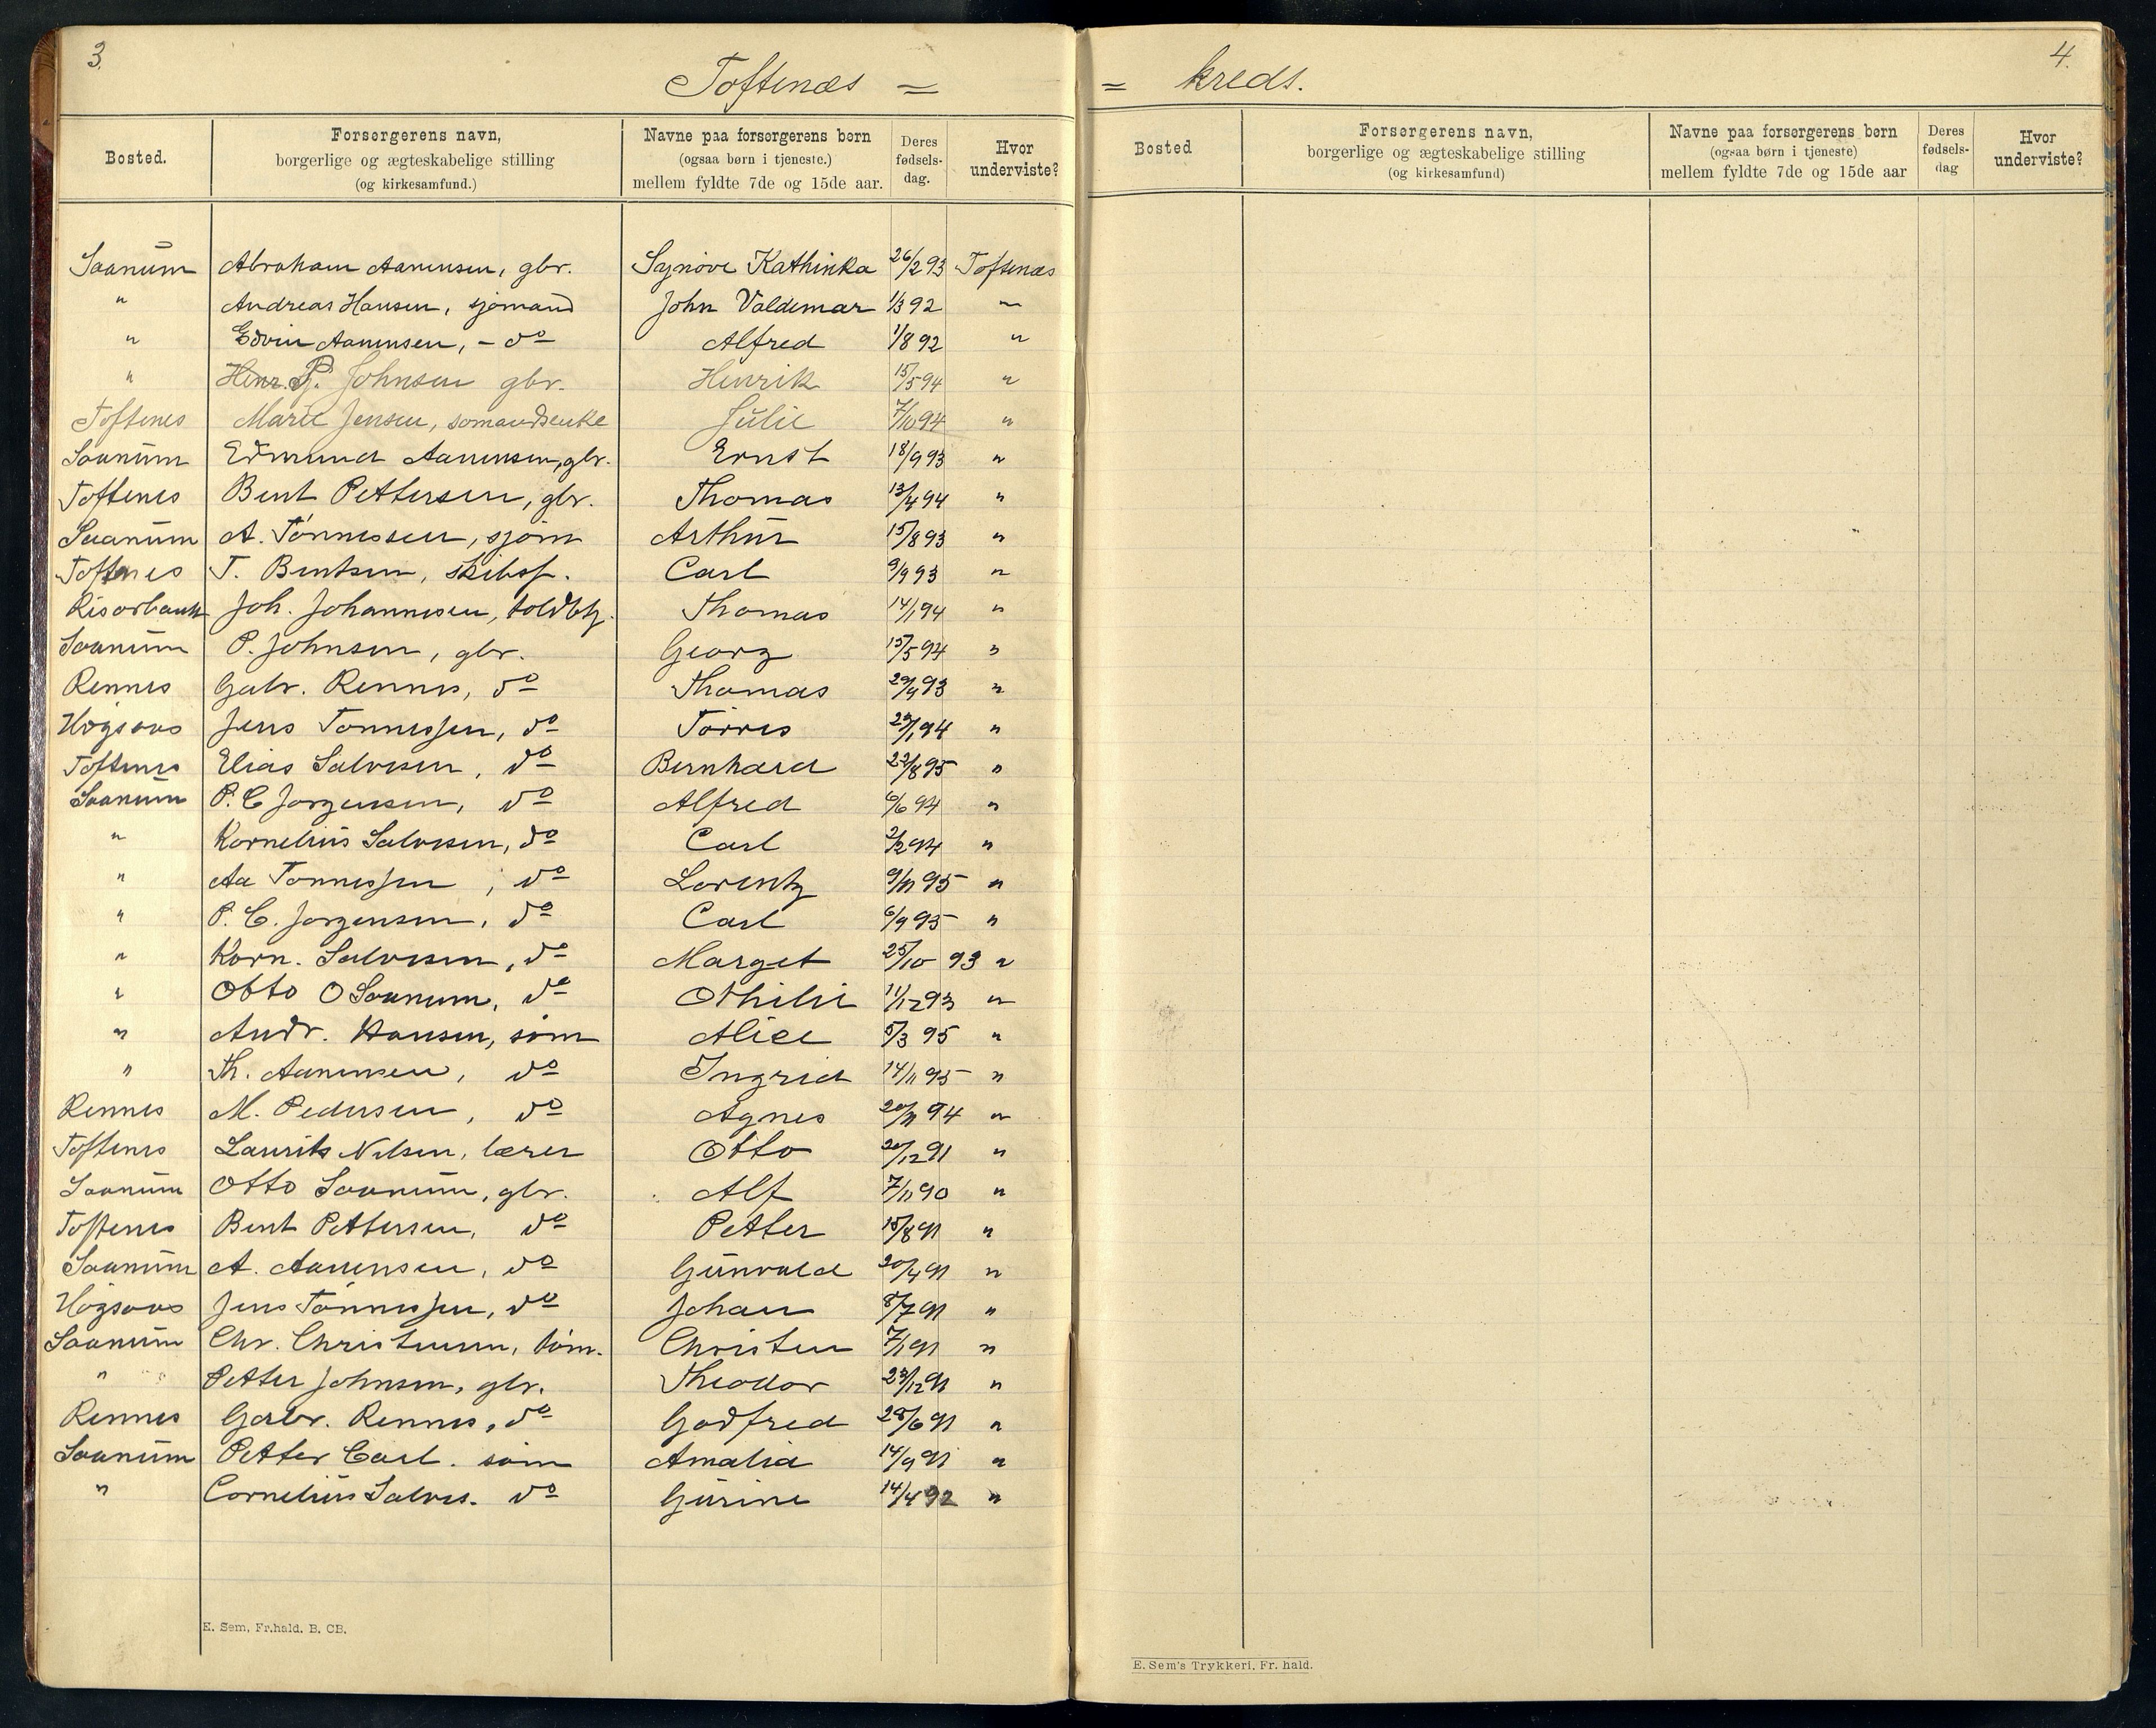 3.
Toftenæs =
Bosted. Forsørgerens navn, borgerlige og ægteskabelige stilling (og kirkesamfund.) Navne paa forsørgerens børn (ogsaa børn i tjeneste.) mellem fyldte 7de og 15de aar. Deres fødsels-dag. Hvor underviste?
Saanum Abraham Aanensen, gbr. Synöve Kathinka 26/2 93 Toftenæs
" Andreas Hansen, sjømand John Valdemar 1/3 92 "
" Edvin Aanensen, - do Alfred 1/8 92 "
" Henr. P. Johnsen gbr. Henrik 15/5 94 "
Toftenes Marie Jensen, sømandsenke Julie 7/10 94 "
Saanum Edmund Aanensen, gbr. Ernst 18/9 93 "
Toftenes Bent Pettersen, gbr. Thomas 13/4 94 "
Saanum A. Tönnessen, sjøm Arthur 15/8 93 "
Toftenes T. Bentsen, skibsf. Carl 9/9 93 "
Risørbank Joh. Johannesen, toldbtj. Thomas 14/1 94 "
Saanum P. Johnsen, gbr. Georg 15/5 94 "
Rennes Gabr. Rennes, do Thomas 29/9 93 "
Högsaas Jens Tönnessen, do Törres 29/1 94 "
Toftenes Elias Salvesen, do Bernhard 22/8 95 "
Saanum P. C Jørgensen, do Alfred 6/6 94 "
" Kornelius Salvesen, do Carl 2/2 94 "
" Aa Tønnessen, do Lorentz 9/11 95 "
" P. C. Jørgensen, do Carl 6/9 95 "
" Korn. Salvesen, do Marget 25/10 93 "
" Otto O Saanum, do Othilie 11/12 93 "
" Andr. Hansen, søm Alice 5/3 95 "
" Th. Aanensen, do Ingrid 14/11 95 "
Rennes M. Pedersen, do Agnes 20/11 94 "
Toftenes Laurits Nilsen, lærer Otto 20/12 91 "
Saanum Otto Saanum, gbr. Alf 7/11 90 "
Toftenes Bent Pettersen, do Petter 15/8 91 "
Saanum A. Aanensen, do Gunvald 20/4 91 "
Högsaas Jens Tönnessen, do Johan 8/7 91 "
Saanum Chr. Christensen, töm. Christen 7/1 91 "
" Petter Johnsen, gbr. Theodor 23/12 91 "
Rennes Gabr. Rennes, do Godfred 28/6 91 "
Saanum Petter Carl. søm Amalia 14/9 91 "
" Cornelius Salves. do Gurine 14/4 92 "
E. Sem, Fr.hald. B. CB.
4.
= kreds.
Bosted Forsørgerens navn, borgerlige og ægteskabelige stilling (og kirkesamfund) Navne paa forsørgerens børn (ogsaa børn i tjeneste) mellem fyldte 7de og 15de aar Deres fødsels-dag Hvor underviste?
E. Sem's Trykkeri, Fr. hald.